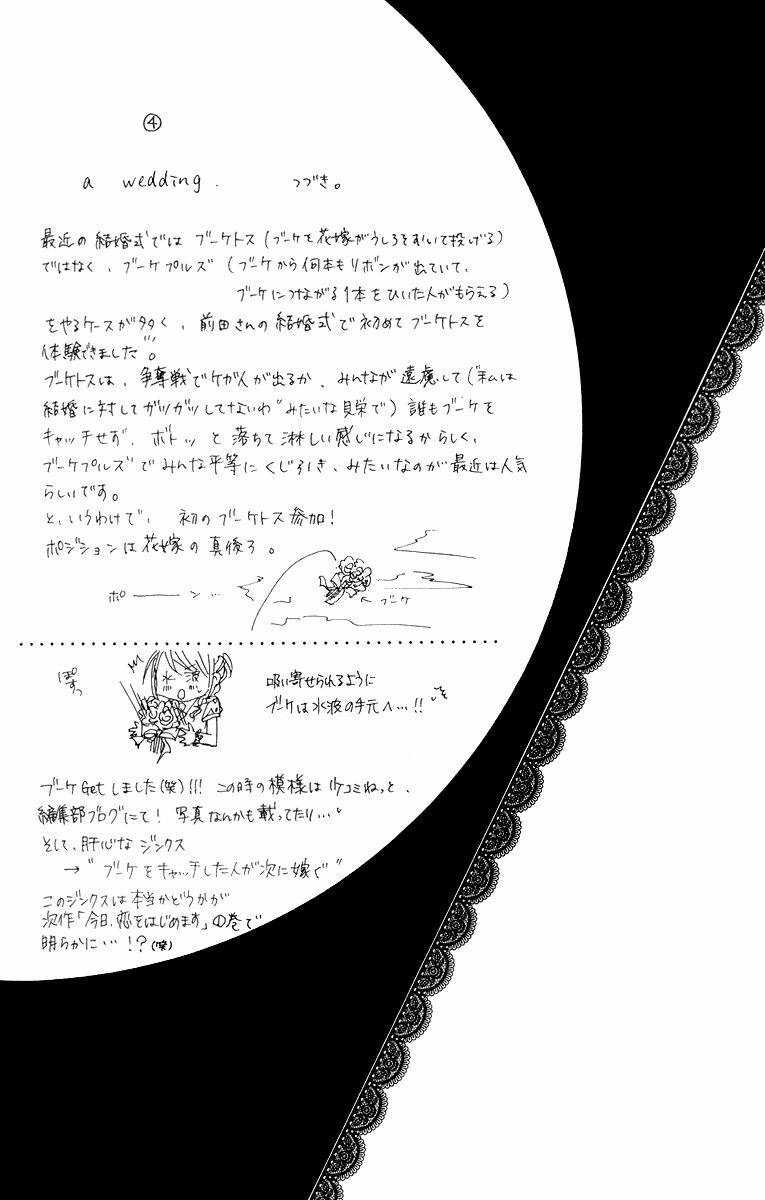 ④
a wedding. つづき。
最近の結婚式ではブーケトス(ブーケを花嫁がうしろをむいて投げる)
ではなく、ブーケプルズ(ブーケから何本もリボンが出ていて、
ブーケにつながる1本をひいた人がもらえる)
をやるケースが多く、前田さんの結婚式で初めてブーケトスを
体験できました。
ブーケトスは、争奪戦でケガ人が出るか、みんなが遠慮して("私は
結婚に対してガツガツしてないわ"みたいな見栄で)誰もブーケを
キャッチせず、ボトッと落ちて淋しい感じになるからしく、
ブーケプルズでみんな平等にくじ引き、みたいなのが最近は人気
らしいです。
と、いうわけで、初のブーケトス参加!
ポジションは花嫁の真後ろ。
ポーーン…
←ブーケ
ぽすっ
水波
吸い寄せられるように
ブーケは水波の手元へ…!!
ブーケGetしました(笑)!!!この時の模様はベツコミねっと、
編集部ブログにて!写真なんかも載ってたり…
そして、肝心なジンクス
→"ブーケをキャッチした人が次に嫁ぐ"
このジンクスは本当かどうかが
次作「今日、恋をはじめます」の巻で
明らかに…!?(笑)